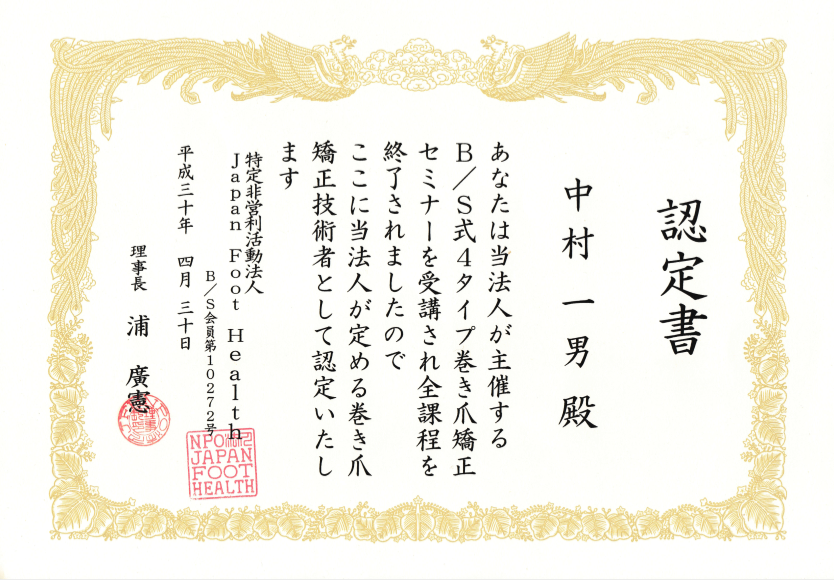 認定書
中村一男殿
あなたは当法人が主催する
B/S式4タイプ巻き爪矯正
セミナーを受講され全課程を
終了されましたので
ここに当法人が定める巻き爪
矯正技術者として認定いたし
ます
特定非営利活動法人
Japan Foot Health
B/S会員第10272号
平成三十年 四月 三十日
理事長 浦 廣憲
NPO
JAPAN
FOOT
HEALTH